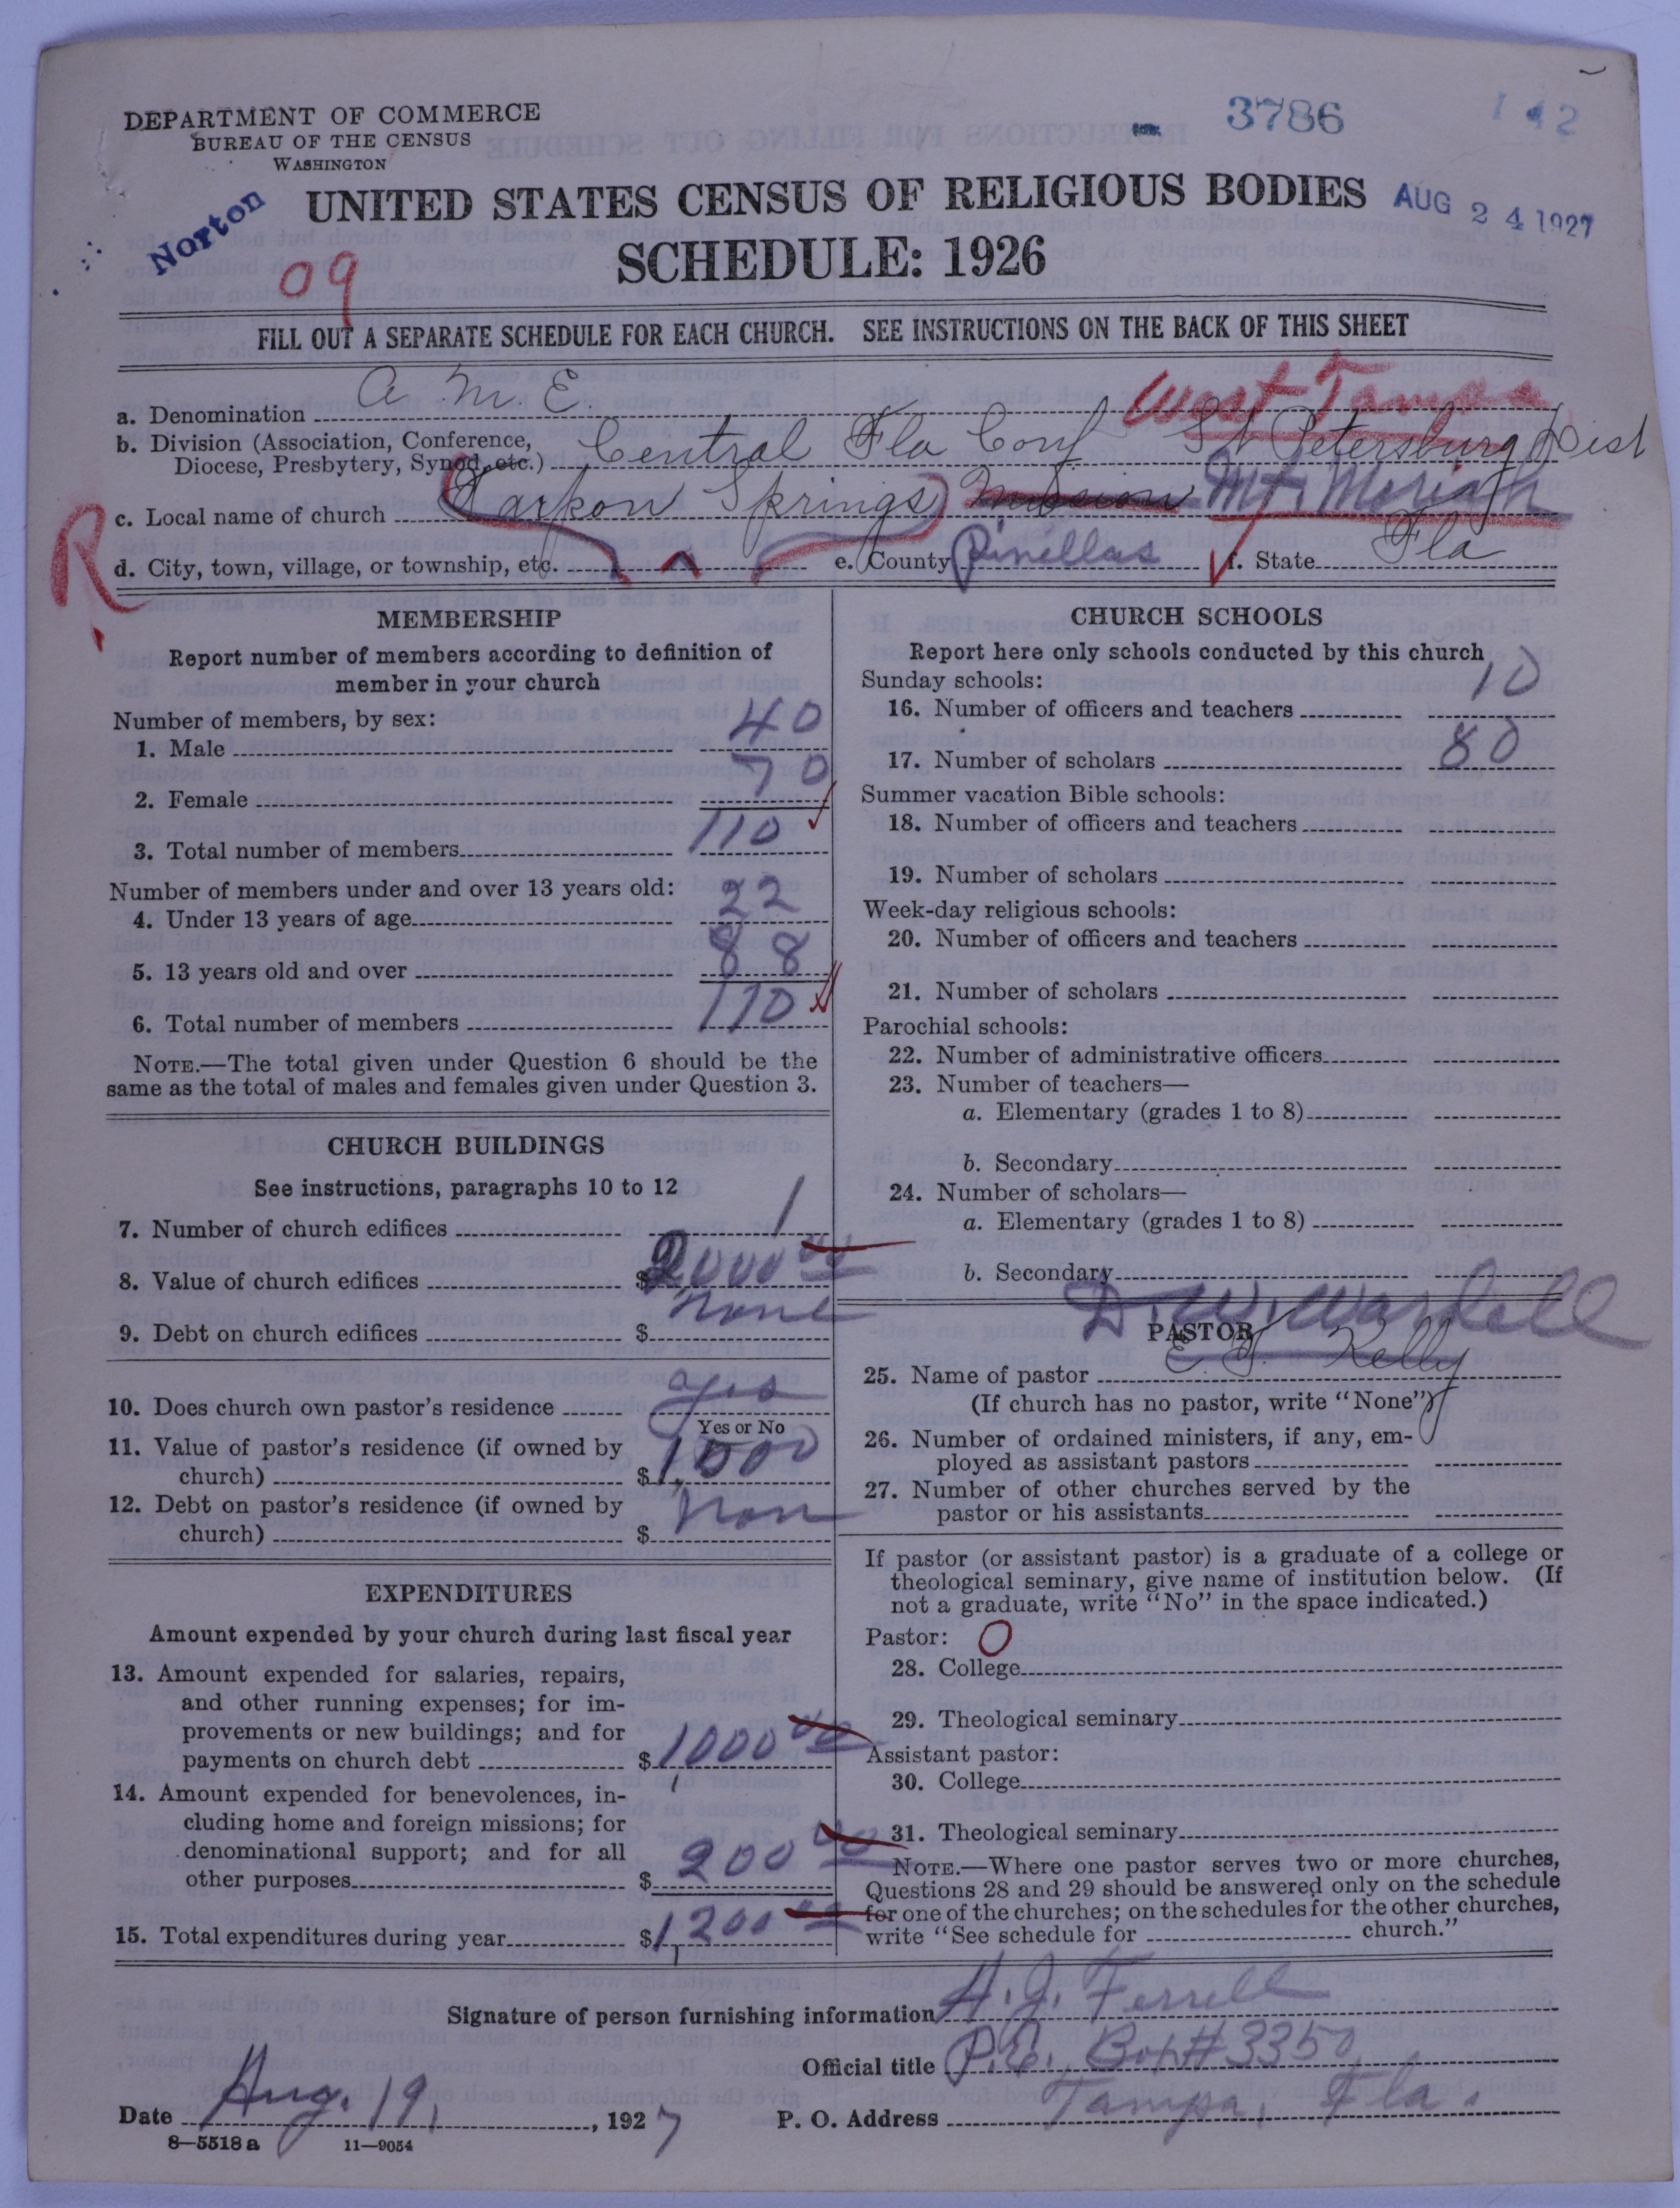 DEPARTMENT OF COMMERCE
BUREAU OF THE CENSUS
WASHINGTON
3786
142
Norton
09
UNITED STATES CENSUS OF RELIGIOUS BODIES
AUG 24 1927
SCHEDULE: 1926
FILL OUT A SEPARATE SCHEDULE FOR EACH CHURCH. SEE INSTRUCTIONS ON THE BACK OF THIS SHEET
West Tampa
a. Denomination A. M. E.
b. Division (Association, Conference, Diocese, Presbytery, Synod, etc.) Central Fla Conf St Petersburg Dist
c. Local name of church Tarpon Springs Mission Mt. Moriah
R
d. City, town, village, or township, etc. e. County Pinellas f. State Fla
MEMBERSHIP
Report number of members according to definition of
member in your church
Number of members, by sex:
1. Male 40
2. Female 70
3. Total number of members 110
Number of members under and over 13 years old:
4. Under 13 years of age 22
5. 13 years old and over 88
6. Total number of members 110
NOTE.—The total given under Question 6 should be the
same as the total of males and females given under Question 3.
CHURCH BUILDINGS
See instructions, paragraphs 10 to 12
7. Number of church edifices 1
8. Value of church edifices $2000 00
9. Debt on church edifices $ None
10. Does church own pastor's residence yes
Yes or No
11. Value of pastor's residence (if owned by
church) $1,000
12. Debt on pastor's residence (if owned by
church) $ Non
EXPENDITURES
Amount expended by your church during last fiscal year
13. Amount expended for salaries, repairs,
and other running expenses; for im-
provements or new buildings; and for
payments on church debt $1,000 00
14. Amount expended for benevolences, in-
cluding home and foreign missions; for
denominational support; and for all
other purposes $ 200 00
15. Total expenditures during year $1,200 00
CHURCH SCHOOLS
Report here only schools conducted by this church
Sunday schools:
16. Number of officers and teachers 10
17. Number of scholars 80
Summer vacation Bible schools:
18. Number of officers and teachers
19. Number of scholars
Week-day religious schools:
20. Number of officers and teachers
21. Number of scholars
Parochial schools:
22. Number of administrative officers
23. Number of teachers—
a. Elementary (grades 1 to 8)
b. Secondary
24. Number of scholars—
a. Elementary (grades 1 to 8)
b. Secondary
D. W. Wardell
PASTOR
25. Name of pastor E. J. Kelly
(If church has no pastor, write "None")
26. Number of ordained ministers, if any, em-
ployed as assistant pastors
27. Number of other churches served by the
pastor or his assistants
If pastor (or assistant pastor) is a graduate of a college or
theological seminary, give name of institution below. (If
not a graduate, write "No" in the space indicated.)
Pastor: O
28. College
29. Theological seminary
Assistant pastor:
30. College
31. Theological seminary
NOTE.—Where one pastor serves two or more churches,
Questions 28 and 29 should be answered only on the schedule
for one of the churches; on the schedules for the other churches,
write "See schedule for church."
Signature of person furnishing information H. J. Ferrell
Official title P.E. Box # 3350
Date Aug. 19, 1927 P. O. Address Tampa, Fla.
8—5518 a 11—9054